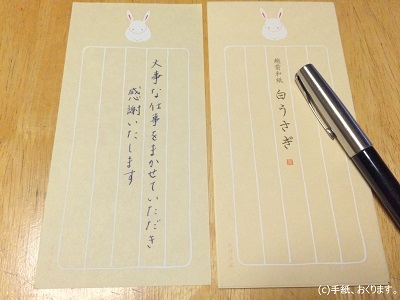 越前和紙
白うさぎ
大事な仕事をまかせていただき
感謝いたします
(c)手紙、おくります。